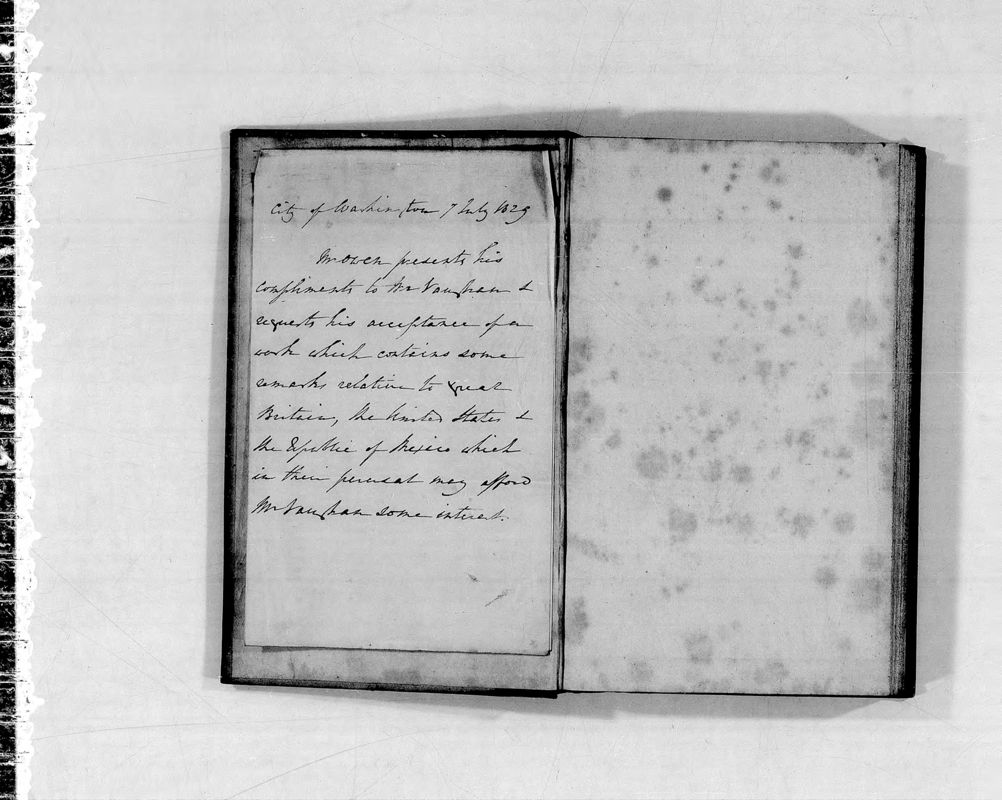 City of Washington 7 July 1829
Mr Owen presents his
compliments to Mr Vaughan &
requests his acceptance of a
work which contains some
remarks relative to Great
Britain, the United States &
the Republic of Mexico which
in their perusal may afford
Mr Vaughan some interest.